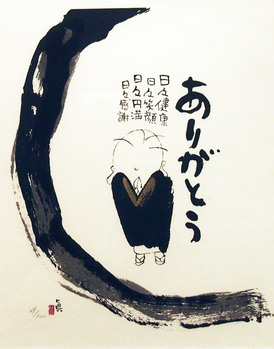 ありがとう
日々健康
日々笑顔
日々円満
日々感謝